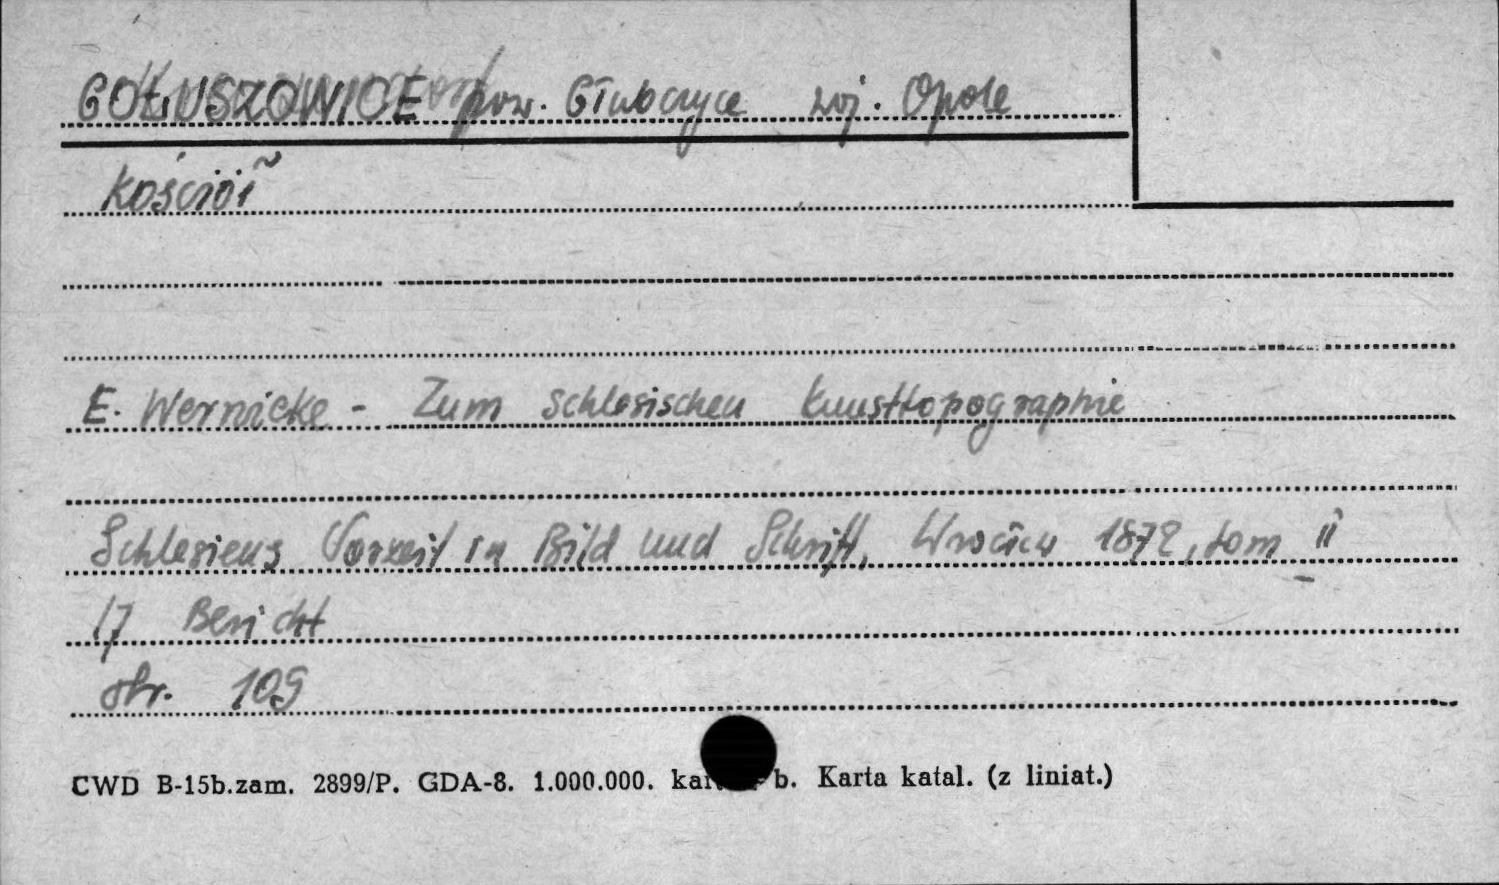 GOŁUSZOWICE pow. Głubczyce woj. Opole
Kościół
E. Wernicke - Zum Schlesischen Kunsttopographie
Schlesiens Vorzeit in Bild und Schrift, Wrocław 1872, tom II
17 Bericht
str. 109
CWD B-15b.zam. 2899/P. GDA-8. 1.000.000. b. Karta katal. (z liniat.)